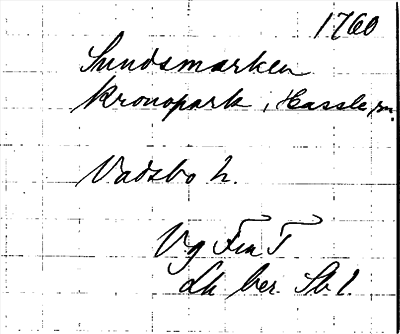 1760
Sundsmarken
kronopark, Hassle sn.
Vadsbo h.
Vg Fra T
Lh ber. Sb 1.